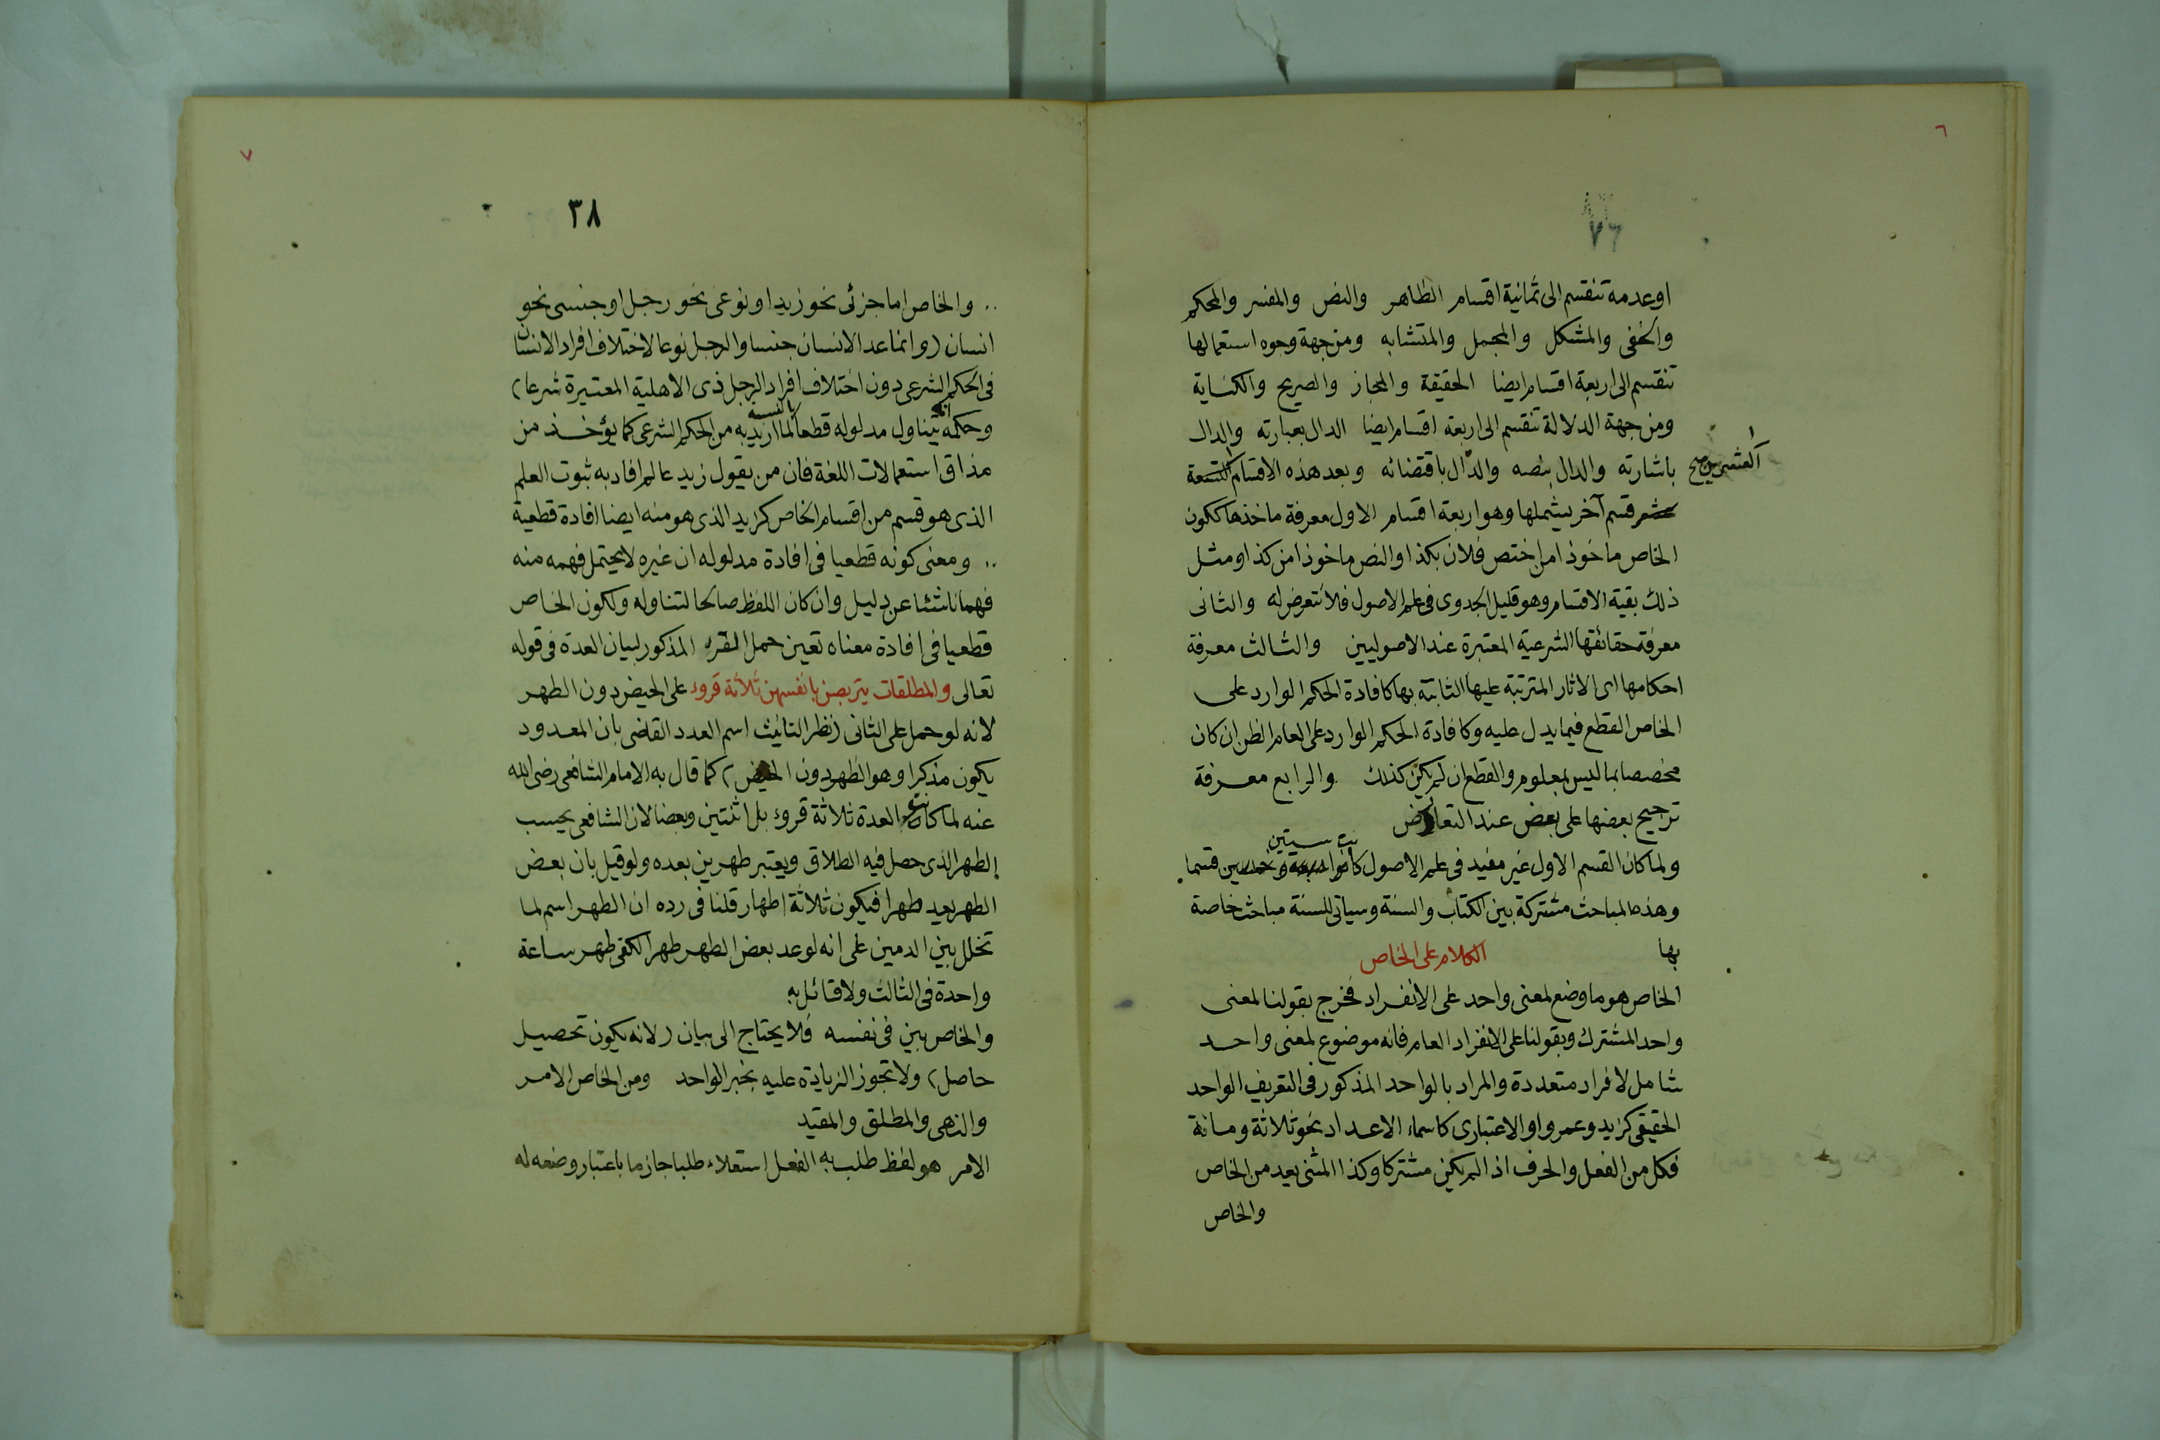 ٦
اوعدمه تنقسم الى ثمانية اقسام الظاهر والنص والمفسر والمحكم
والخفى والمشكل والمجمل والمتشابه ومن جهة وجوه استعمالها
تنقسم الى اربعة اقسام ايضا الحقيقة والمجاز والصريح والكناية
ومن جهة الدلالة تنقسم الى اربعة اقسام ايضا الدال بعبارته والدال
باشارته والدال بنصه والدال باقتضائه وبعد هذه الاقسام التسعة
العشرين صح
عشر قسم آخر يشملها وهو اربعة اقسام الاول معرفة ماخذها ككون
الخاص ماخوذا من اختص فلان بكذا والنص ماخوذا من كذا ومثل
ذلك بقية الاقسام وهو قليل الجدوى فى علم الاصول فلا نتعرض له والثانى
معرفة حقائقها الشرعية المعتبرة عند الاصوليين والثالث معرفة
احكامها اى الاثار المترتبة عليها الثابتة بها كافادة الحكم الوارد على
الخاص القطع فيما يدل عليه وكافادة الحكم الوارد على العام الظن ان كان
مخصصا بما ليس بمعلوم والقطع ان لم يكن كذلك والرابع معرفة
ترجيح بعضها على بعض عند التعارض
ولما كان القسم الاول غير مفيد فى علم الاصول كانت ستين قسما
وهذه المباحث مشتركة بين الكتاب والسنة وسياتى للسنة مباحث خاصة
بها
الكلام على الخاص
الخاص هو ما وضع لمعنى واحد على الانفراد فخرج بقولنا لمعنى
واحد المشترك وبقولنا على الانفراد العام فانه موضوع لمعنى واحد
شامل لافراد متعددة والمراد بالواحد المذكور فى التعريف الواحد
الحقيقى كزيد وعمرو او الاعتبارى كاسماء الاعداد نحو ثلاثة ومائة
فكل من الفعل والحرف اذا لم يكن مشتركا وكذا المثنى يعد من الخاص
والخاص
٧
٣٨
.. والخاص اما جزئى نحو زيد او نوعى نحو رجل او جنسى نحو
انسان (وانما عد الانسان جنسا والرجل نوعا لاختلاف افراد الانسان
فى الحكم الشرعى دون اختلاف افراد الرجل ذى الاهلية المعتبرة شرعا)
وحكمه انه يتناول مدلوله قطعا بالنسبة لما اريد به من الحكم الشرعى كما يؤخذ من
مذاق استعمالات اللغة فان من يقول زيد عالم افاد به ثبوت العلم
الذى هو قسم من اقسام الخاص كزيد الذى هو منه ايضا افادة قطعية
.. ومعنى كونه قطعيا فى افادة مدلوله ان غيره لا يحتمل فهمه منه
فهما ناشئا عن دليل وان كان اللفظ صالحا لتناوله ولكون الخاص
قطعيا فى افادة معناه تعين حمل القرء المذكور لبيان العدة فى قوله
تعالى والمطلقات يتربصن بانفسهن ثلاثة قروء على الحيض دون الطهر
لانه لو حمل على الثانى (نظرا لتانيث اسم العدد القاضى بان المعدود
يكون مذكرا وهو الطهر دون الحيض) كما قال به الامام الشافعى رضى الله
عنه لما كانت العدة ثلاثة قروء بل اثنتين وبعضا لان الشافعى يحسب
الطهر الذى حصل فيه الطلاق ويعتبر طهرين بعده ولو قيل بان بعض
الطهر يعد طهرا فيكون ثلاثة اطهار قلنا فى رده ان الطهر اسم لما
تخلل بين الدمين على انه لو عد بعض الطهر طهرا لكفى طهر ساعة
واحدة فى الثالث ولا قائل به
والخاص بين فى نفسه فلا يحتاج الى بيان (لانه يكون تحصيل
حاصل) ولا تجوز الزيادة عليه بخبر الواحد ومن الخاص الامر
والنهى والمطلق والمقيد
الامر هو لفظ طلب به الفعل استعلاء طلبا جازما باعتبار وضعه له